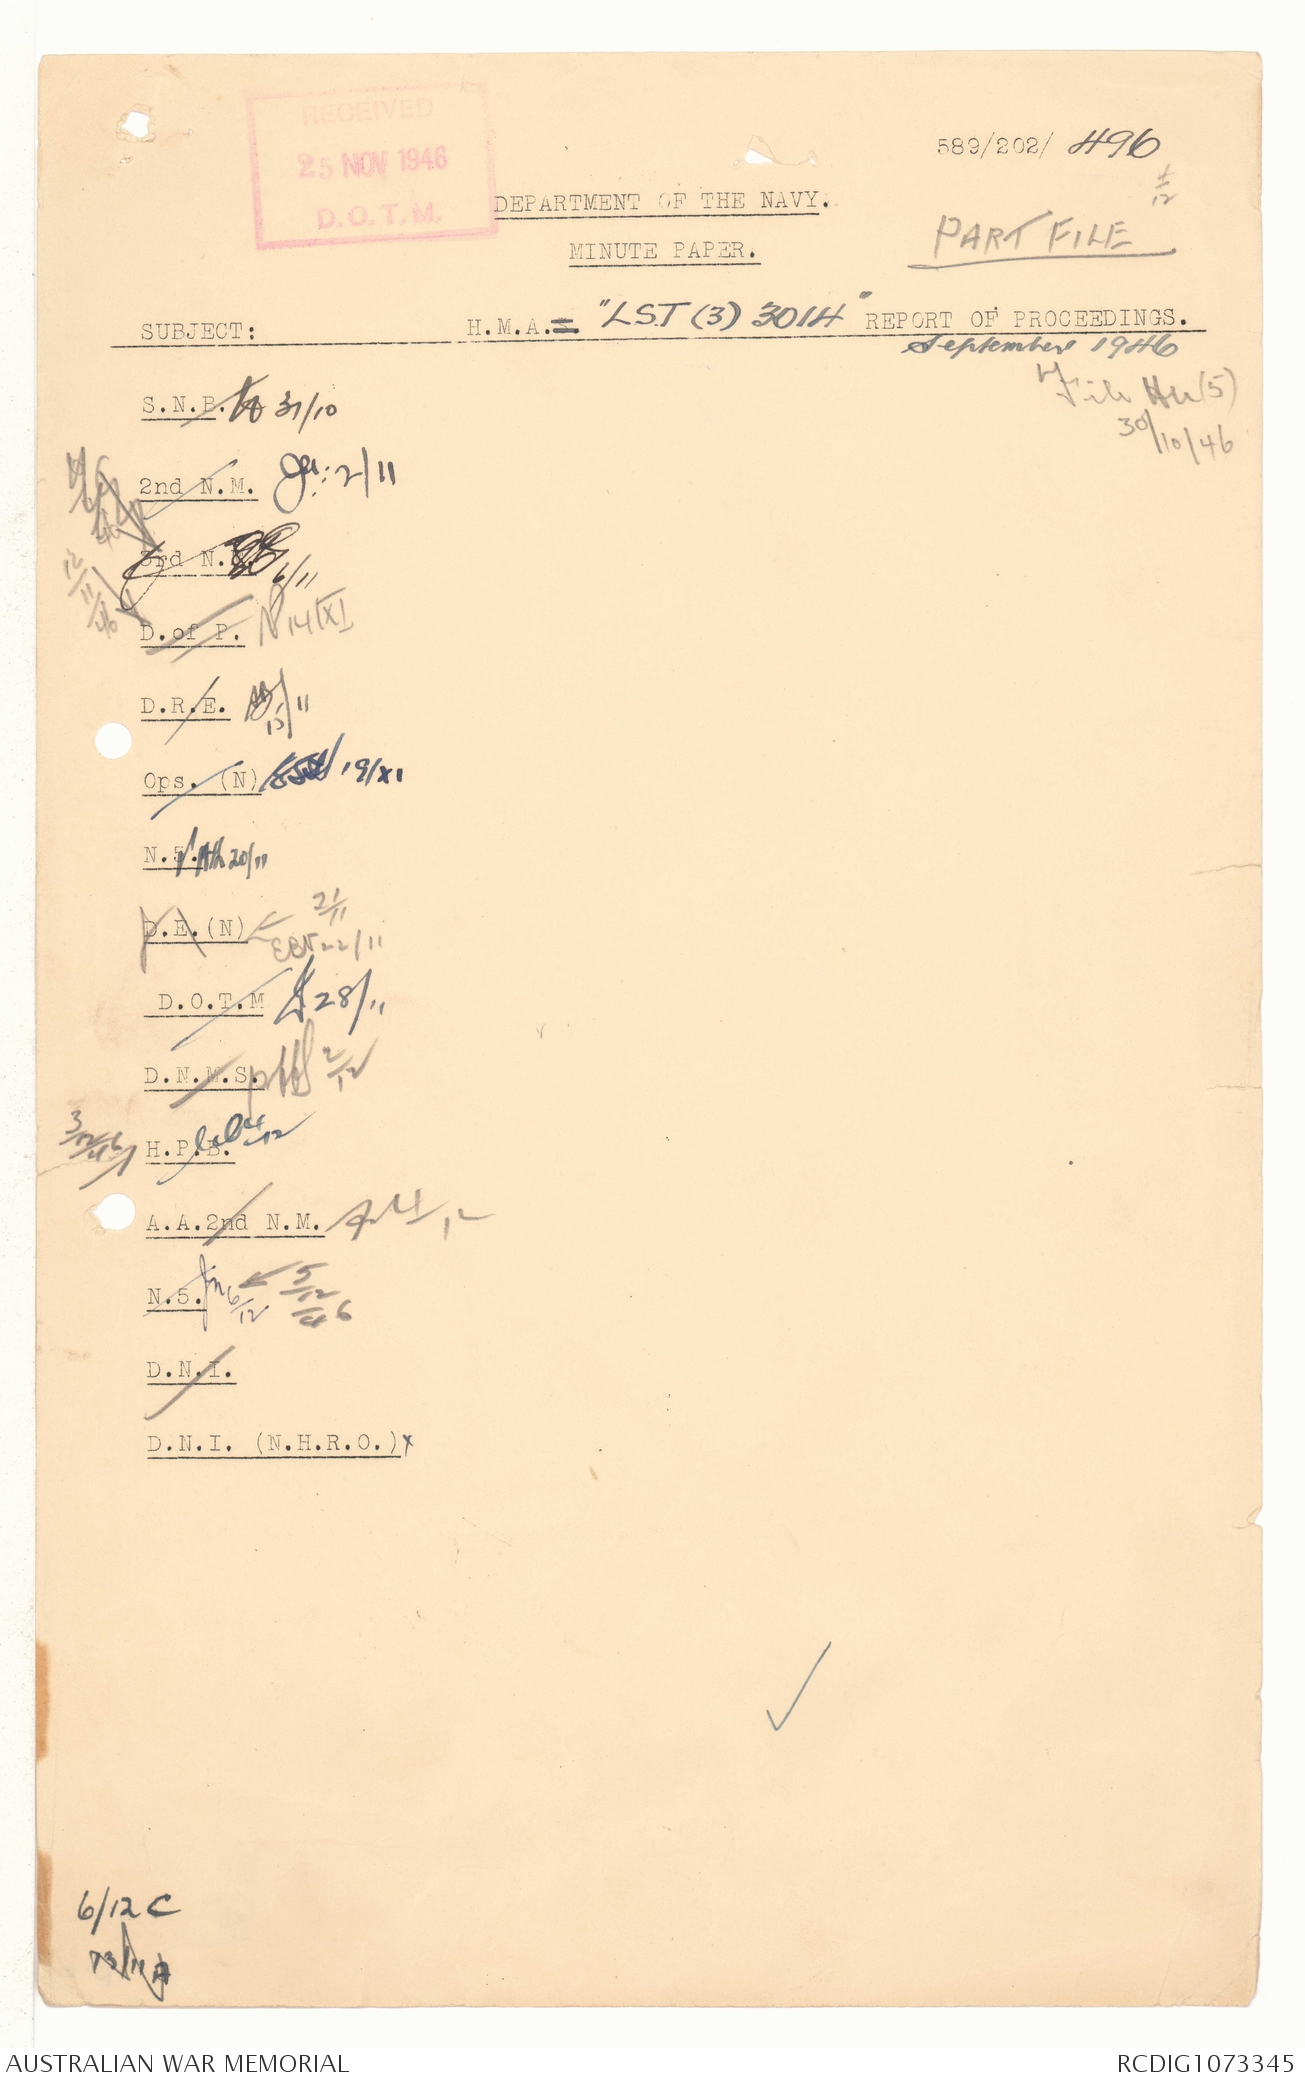 RECEIVED
25 NOV 1946
D.O.T.M.
589/202/ 496
4/12
DEPARTMENT OF THE NAVY.
MINUTE PAPER.
PART FILE
SUBJECT: H.M.A.S "LST (3) 3014" REPORT OF PROCEEDINGS.
September 1946
File (5)
30/10/46
S.N.B. 31/10
2nd N.M. 2/11
3rd N. 6/11
12/11/46
D.of P. 14/XI
D.R.E. 15/11
Ops. (N) 19/XI
N.5. 20/11
21/11
D.E.(N) 22/11
D.O.T.M 28/11
D.N.M.S. 2/12
3/12/46
H.P.B. 4/12
A.A.2nd N.M. 4/12
N.5. 6/12 5/12/46
D.N.I.
D.N.I. (N.H.R.O.)x
6/12 C
AUSTRALIAN WAR MEMORIAL
RCDIG1073345